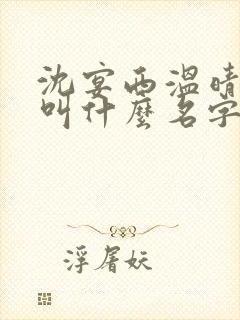 沈宴西溫晴
叫什麼名字
浮屠妖